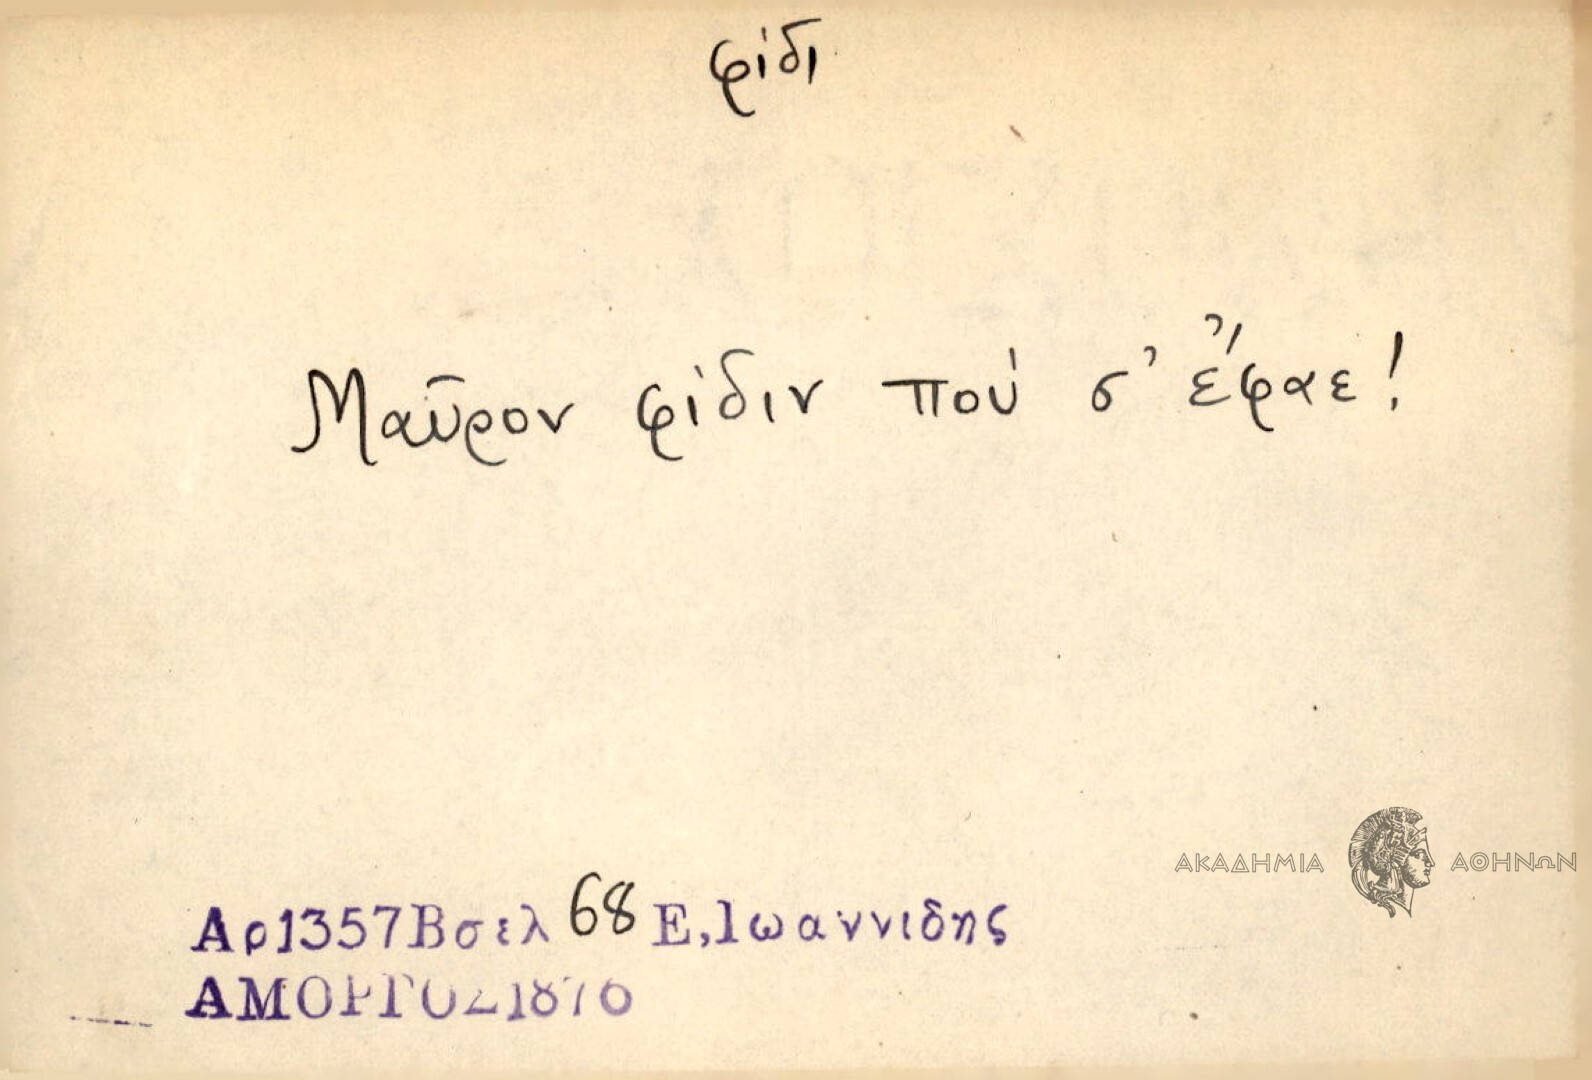 φίδι
Μαῦρον φίδιν πού σ' ἔφαε!
ΑΚΑΔΗΜΙΑ ΑΘΗΝΩΝ
Αρ1357Βσελ 68 Ε,Ιωαννιδης
ΑΜΟΡΓΟΣ1876